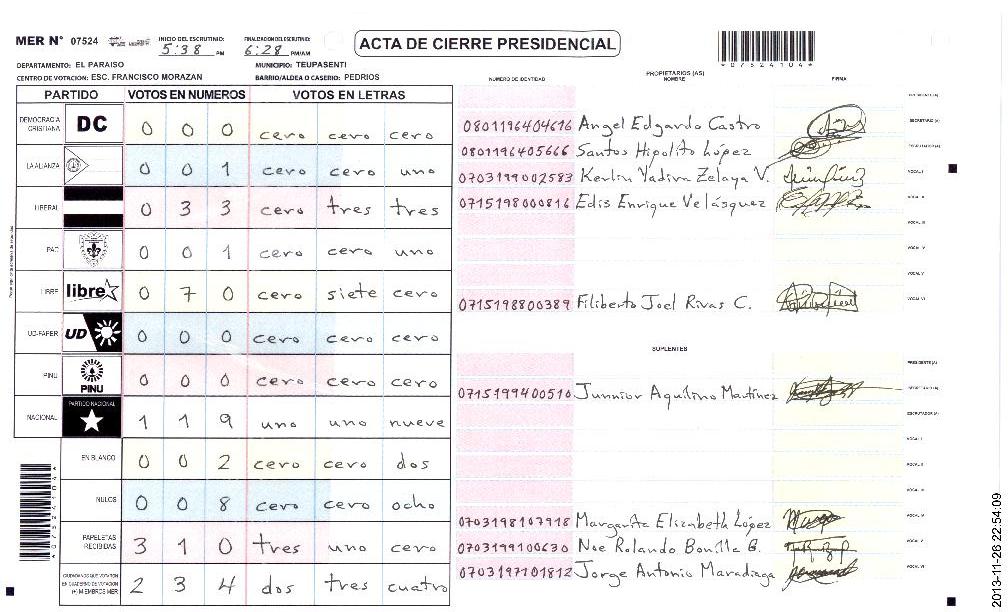 MER N° 07524
INICIO DEL ESCRUTINIO: 5:38 PM
FINALIZACION DEL ESCRUTINIO: 6:28 PM/AM
ACTA DE CIERRE PRESIDENCIAL
*07524104*
DEPARTAMENTO: EL PARAISO MUNICIPIO: TEUPASENTI
CENTRO DE VOTACION: ESC. FRANCISCO MORAZAN BARRIO/ALDEA O CASERIO: PEDRIOS
PARTIDO VOTOS EN NUMEROS VOTOS EN LETRAS
DEMOCRACIA CRISTIANA DC 0 0 0 cero cero cero
LA ALIANZA 0 0 1 cero cero uno
LIBERAL 0 3 3 cero tres tres
PAC 0 0 1 cero cero uno
LIBRE libre 0 7 0 cero siete cero
UD-FAPER UD 0 0 0 cero cero cero
PINU PINU 0 0 0 cero cero cero
NACIONAL PARTIDO NACIONAL 1 1 9 uno uno nueve
EN BLANCO 0 0 2 cero cero dos
NULOS 0 0 8 cero cero ocho
PAPELETAS RECIBIDAS 3 1 0 tres uno cero
CIUDADANOS QUE VOTARON EN CUADERNO DE VOTACION (+) MIEMBROS MER 2 3 4 dos tres cuatro
*07524104*
NUMERO DE IDENTIDAD PROPIETARIOS (AS) NOMBRE FIRMA
PRESIDENTE (A)
0801196404616 Angel Edgardo Castro SECRETARIO (A)
0801196405666 Santos Hipolito López ESCRUTADOR (A)
0703199002583 Kerlin Yadira Zelaya V. VOCAL I
0715198000816 Edis Enrique Velásquez VOCAL II
VOCAL III
VOCAL IV
VOCAL V
0715198800389 Filiberto Joel Rivas C. VOCAL VI
SUPLENTES
PRESIDENTE (A)
0715199400510 Junnior Aquilino Martínez SECRETARIO (A)
ESCRUTADOR (A)
VOCAL I
VOCAL II
VOCAL III
0703198107918 Margarita Elizabeth López VOCAL IV
0703199100630 Noe Rolando Bonilla B. VOCAL V
0703197101812 Jorge Antonio Maradiaga VOCAL VI
2013-11-26 22:54:09